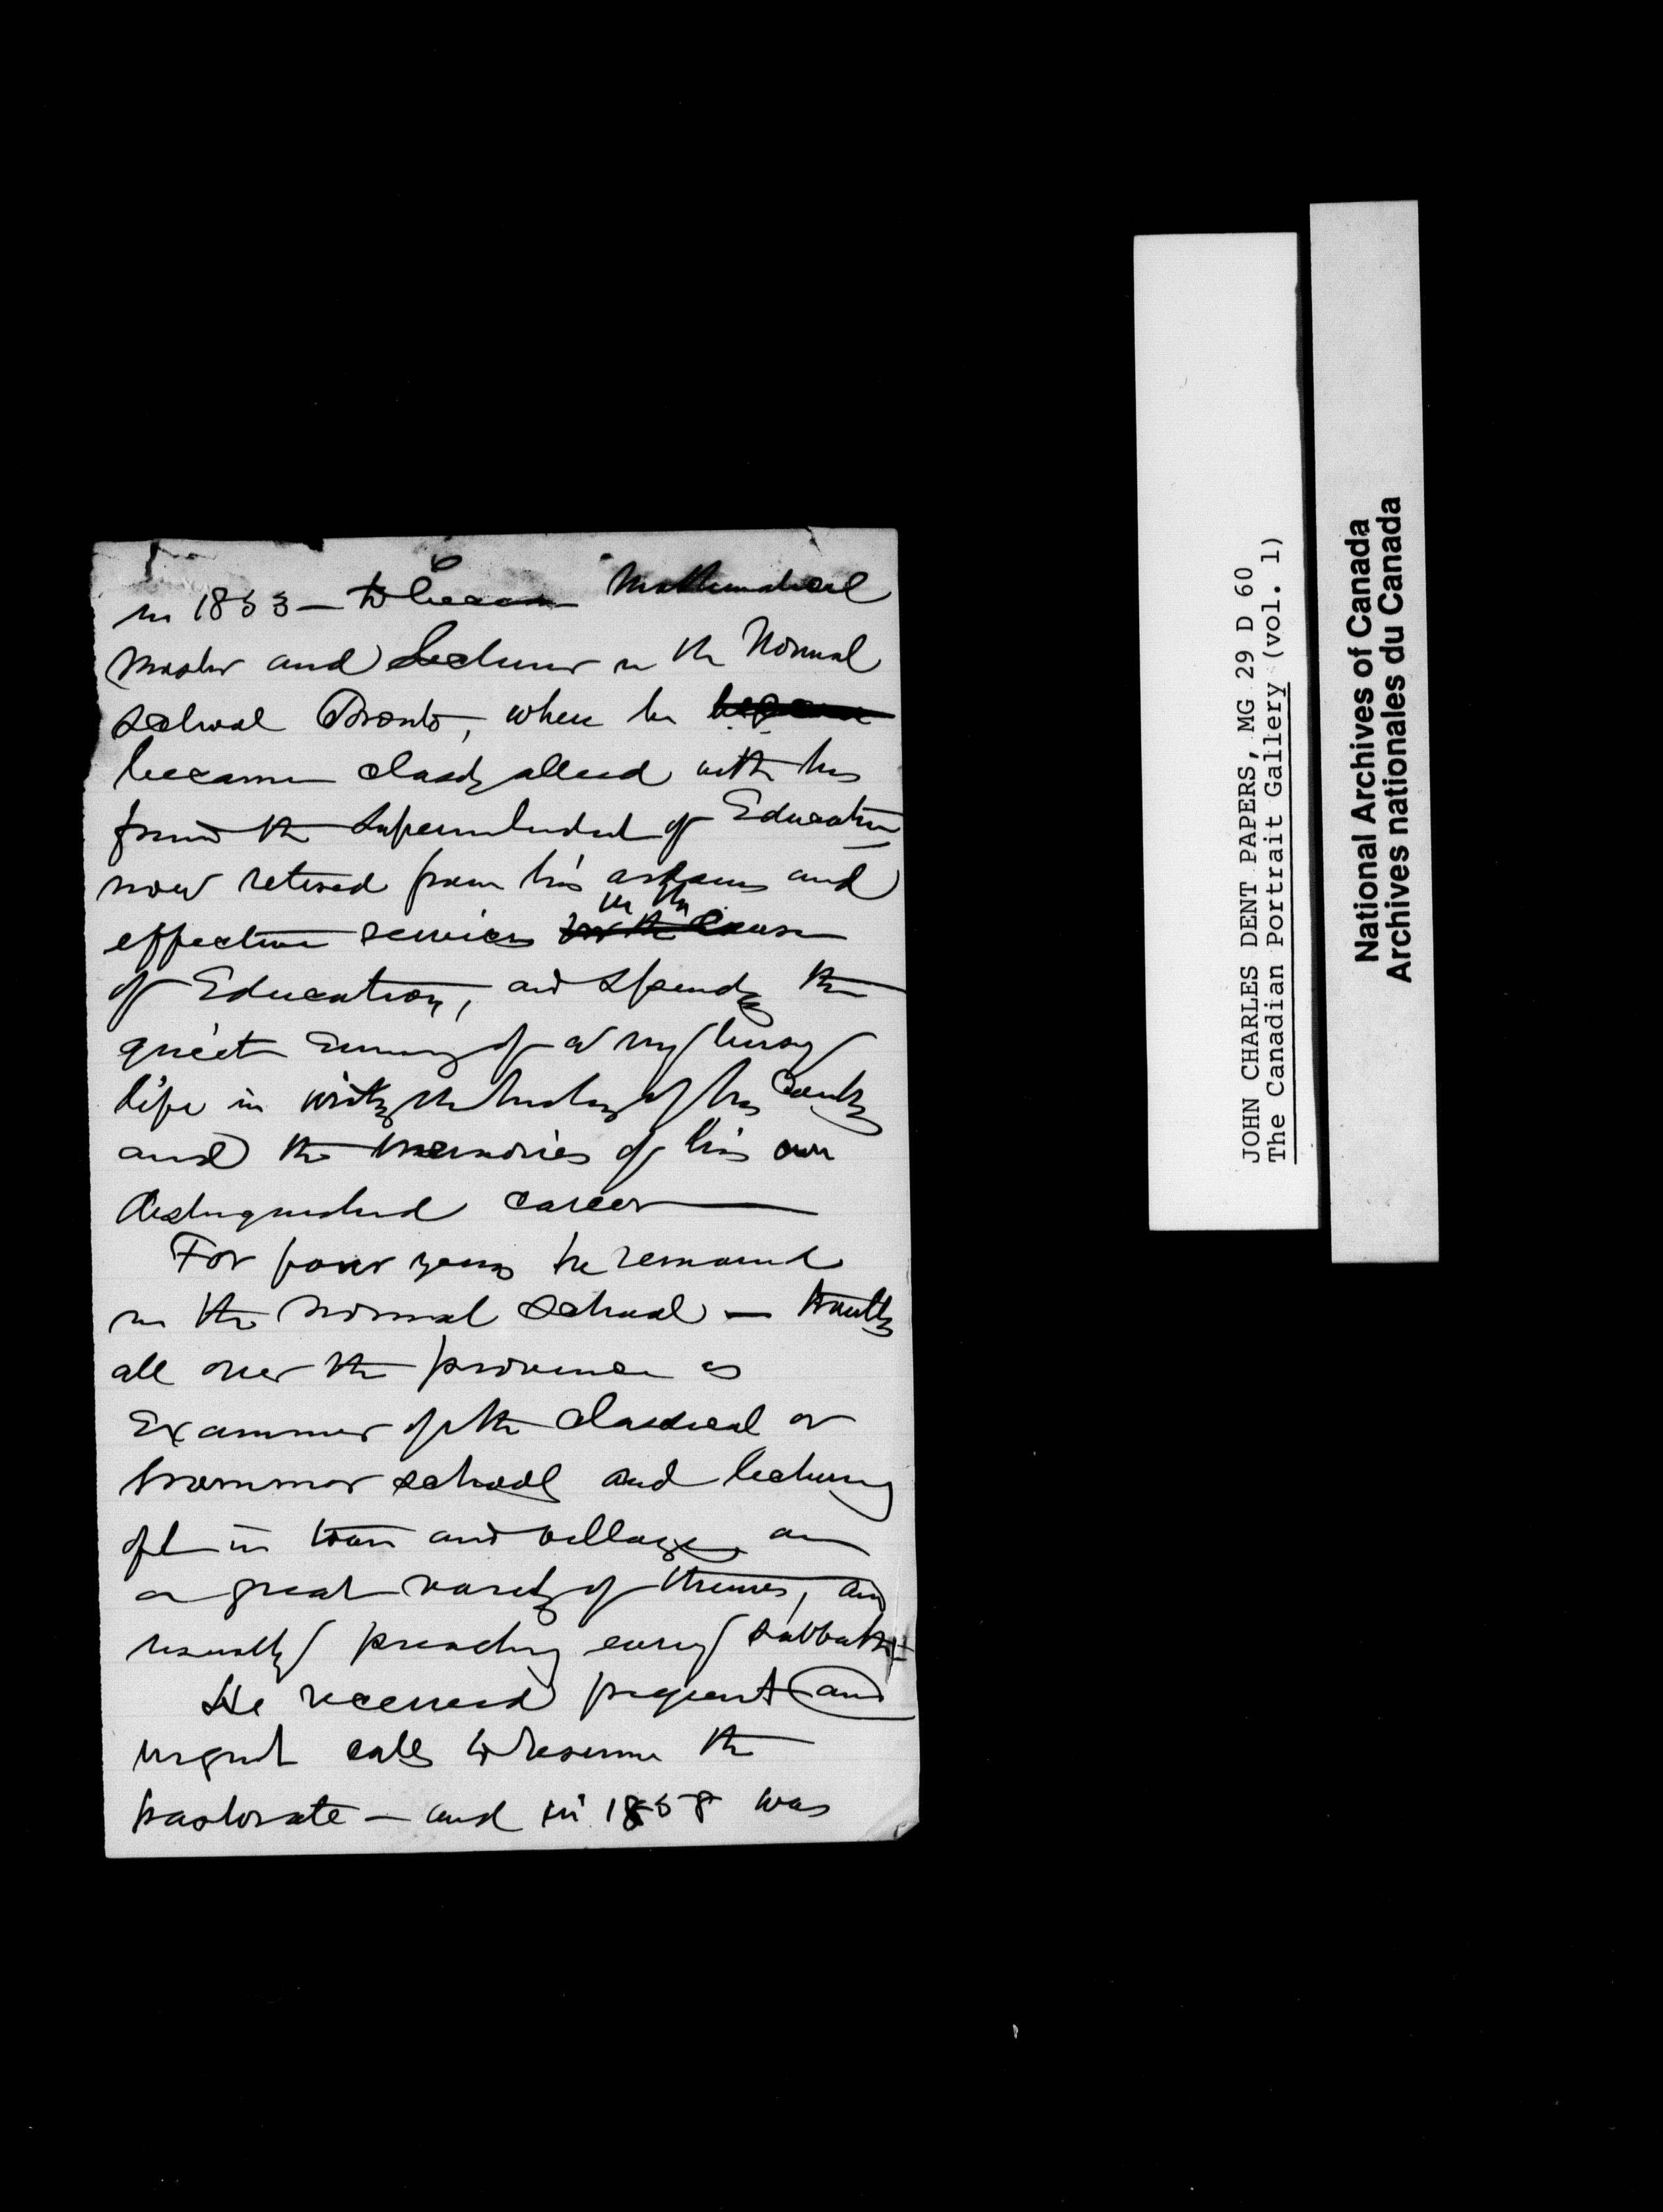 in 1853 — to become Mathematical
Master and Lecturer in the Normal
School Toronto, where he
became closely allied with his
friend the Superintendent of Education
now retired from his arduous and
effective services in the cause
of Education, and spending the
quiet evening of a very busy
life in writing the history of his Country
and the memories of his own
distinguished career —
For four years he remained
in the normal school — travelling
all over the province as
Examiner of the Classical or
Grammar school and lecturing
oft in town and village on
a great variety of themes, and
usually preaching every Sabbath
He received frequent and
urgent calls to resume the
pastorate — and in 1858 was
JOHN CHARLES DENT PAPERS, MG 29 D 60
The Canadian Portrait Gallery (vol. 1)
National Archives of Canada
Archives nationales du Canada